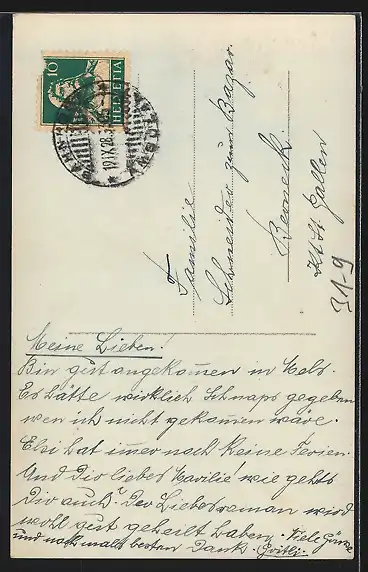 10
HELVETIA
19.IX.28
Familie
Schneider zum Bazar
Berneck
Kt St. Gallen
31-9
Meine Lieben!
Bin gut angekommen in Mols.
Es hätte wirklich Schnaps gegeben
wen ich nicht gekommen wäre.
Elsi hat imer noch keine Ferien.
Und Dir liebes wie gehts
Dir auch? Der wird
wohl gut geheilt haben. Viele Grüsse
und nochmalls besten Dank.